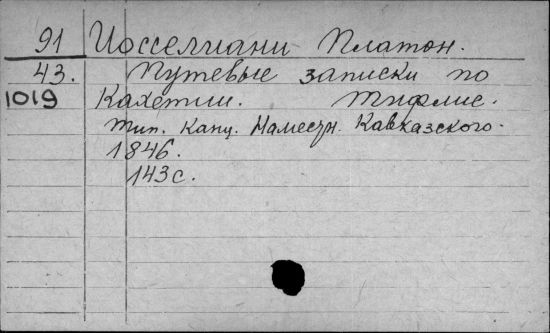 91 Иосселиани Платон.
43. Путевые записки по
1019 Кахетии. Тифлис.
Тип. Канц. Наместн. Кавказского.
1846.
143 с.